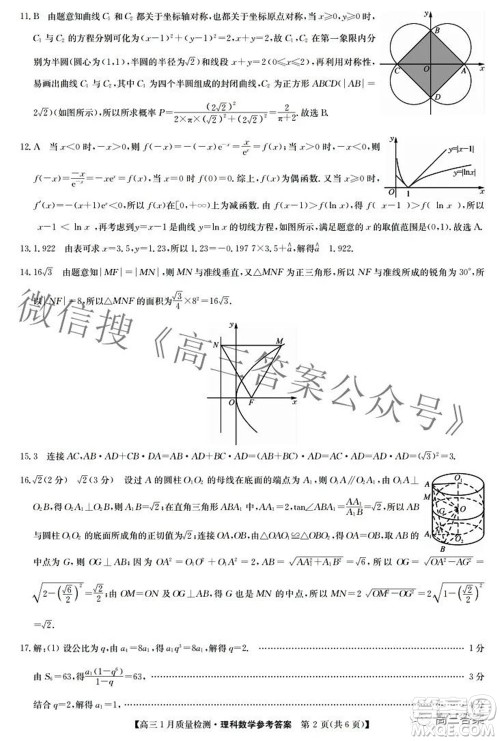 11.B 由题意知曲线 C₁ 和 C₂ 都关于坐标轴对称,也都关于坐标原点对称,当 x≥0,y≥0 时,
C₁ 与 C₂ 的方程分别可化为(x-1)²+(y-1)²=2,x+y=2,故 C₁,C₂ 在第一象限内分
别为半圆(圆心为(1,1),半圆的半径为√2)和线段 x+y=2(0≤x≤2),再利用对称性,
易画出曲线 C₁ 与 C₂,其中 C₁ 为四个半圆组成的封闭曲线,C₂ 为正方形 ABCD(|AB|=
2√2)(如图所示),所以所求概率 P=(2√2)²/(2×π×(√2)²+(2√2)²)=2/(π+2). 故选 B.
12.A 当 x<0 时,-x>0,则 f(-x)=-(-x)e⁻ˣ=x/eˣ=f(x);当 x>0 时,-x<0,则
f(-x)=-x/e⁻ˣ=-xeˣ=f(x),当 x=0 时,f(0)=0. 综上,f(x)为偶函数. 又当 x>0 时,
f′(x)=-(x+1)eˣ<0,所以 f(x)在[0,+∞)上单调递减,则 f(x-1)>f(ln x),所以
|x-1|<|ln x|,再考虑到 y=x-1 是曲线 y=ln x 的切线方程,如图所示,满足题意的 x 的取值范围是(0,1). 故选 A.
13.1.922 由表可求 x̄=3.5,ȳ=1.23,所以 1.23=-0.197 7×3.5+â,解得 â≈1.922.
14.16√3 由题意知|MF|=|MN|,则 MN 与准线垂直,又△MNF 为正三角形,所以 NF 与准线所成的锐角为 30°,所
以|NF|=8,所以△MNF 的面积为√3/4×8²=16√3.
y
N
M
O
F
x
15.3 连接 AC,AB·AD+CB·DA=AB·AD+BC·AD=(AB+BC)·AD=AC·AD=AD·AD=(√3)²=3.
16.√2(2 分) √2(3 分) 设过 A 的圆柱 O₁O₂ 的母线在底面的端点为 A₁,则 O₁A∥O₂A₁,由 O₁A⊥
O₂B,得 O₂A₁⊥O₂B,则 A₁B=√2;在直角三角形 ABA₁ 中,AA₁=2,tan∠ABA₁=AA₁/A₁B=√2,所以 AB
与圆柱 O₁O₂ 的底面所成角的正切值为√2;连接 OA,OB,由△OAO₁≌△OBO₂,得 OA=OB,取 AB 的
中点为 G,则 OG⊥AB;因为 OA²=O₁O²+O₁A²=2,AB=√(AA₁²+A₁B²)=√6,所以 OG=√(OA²-AG²)=
√(2-(√6/2)²)=√2/2;由 OM=ON 及 OG⊥AB,也得 G 是 MN 的中点,所以 MN=2√(OM²-OG²)=2√(1-(√2/2)²)
=√2.
17.解:(1) 设公比为 q,由 a₄=8a₁,得 a₁q³=8a₁,解得 q=2. …… 1 分
由 S₆=63,得 a₁(1-q⁶)/(1-q)=63, …… 3 分
结合 q=2,解得 a₁=1, …… 4 分
【高三 1 月质量检测·理科数学参考答案 第 2 页(共 6 页)】
微信搜《高三答案公众号》
高三答案